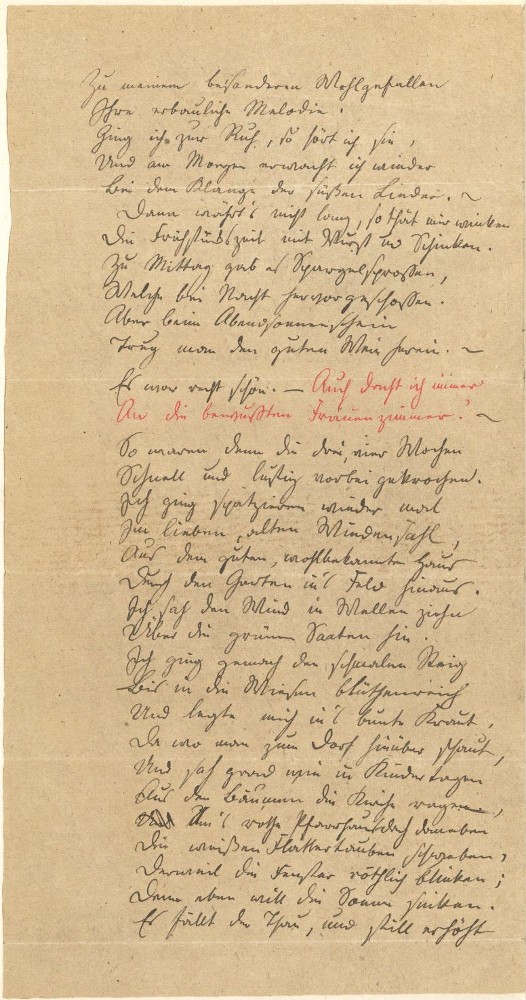 Zu meinem besonderen Wohlgefallen
Ihre erbauliche Melodie.
Ging ich zur Ruh, so hört ich sie,
Und am Morgen erwacht ich wieder
Bei dem Klange der süßen Lieder. ~
Dann währt's nicht lang, so thät mir winken
Die Frühstückszeit mit Wurst und Schinken.
Zu Mittag gab es Spargelsprossen,
Welche bei Nacht hervorgeschossen.
Aber beim Abendsonnenschein
Trug man den guten Wein herein. ~
Es war recht schön. — Auch dacht ich immer
An die bewußten Frauenzimmer. ~
So waren denn die drei, vier Wochen
Schnell und lustig vorbei gekrochen.
Ich ging spatzieren wieder mal
Im lieben, alten Wiedensahl,
Aus dem guten, wohlbekannten Haus
Durch den Garten in's Feld hinaus.
Ich sah den Wind in Wellen ziehn
Über die grünen Saaten hin.
Ich ging gemach den schmalen Steig
Bis in die Wiesen blüthenreich
Und legte mich in's bunte Kraut,
Da wo man zum Dorf hinüber schaut,
Und sah grad wie in Kindertagen
Aus den Bäumen die Kirche ragen,
Um's rothe Pfarrhausdach daneben
Die weißen Flattertauben schweben,
Derweil die Fenster röthlich blinken;
Denn eben will die Sonne sinken.
Es fällt der Thau, und still erhöht